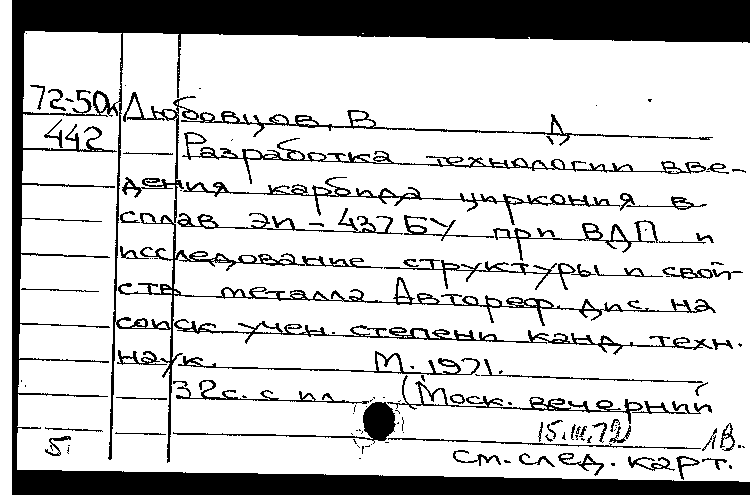 72-50к Любовцов, В
442 Д
Разработка технологии вве-
дения карбида циркония в
сплав ЭП-437БУ при ВДП и
исследование структуры и свой-
ств металла. Автореф. дис. на
соиск учен. степени канд. техн.
наук. М. 1971.
32с. с ил. (Моск. вечерний
15.III.72 1В.
5. см. след. карт.